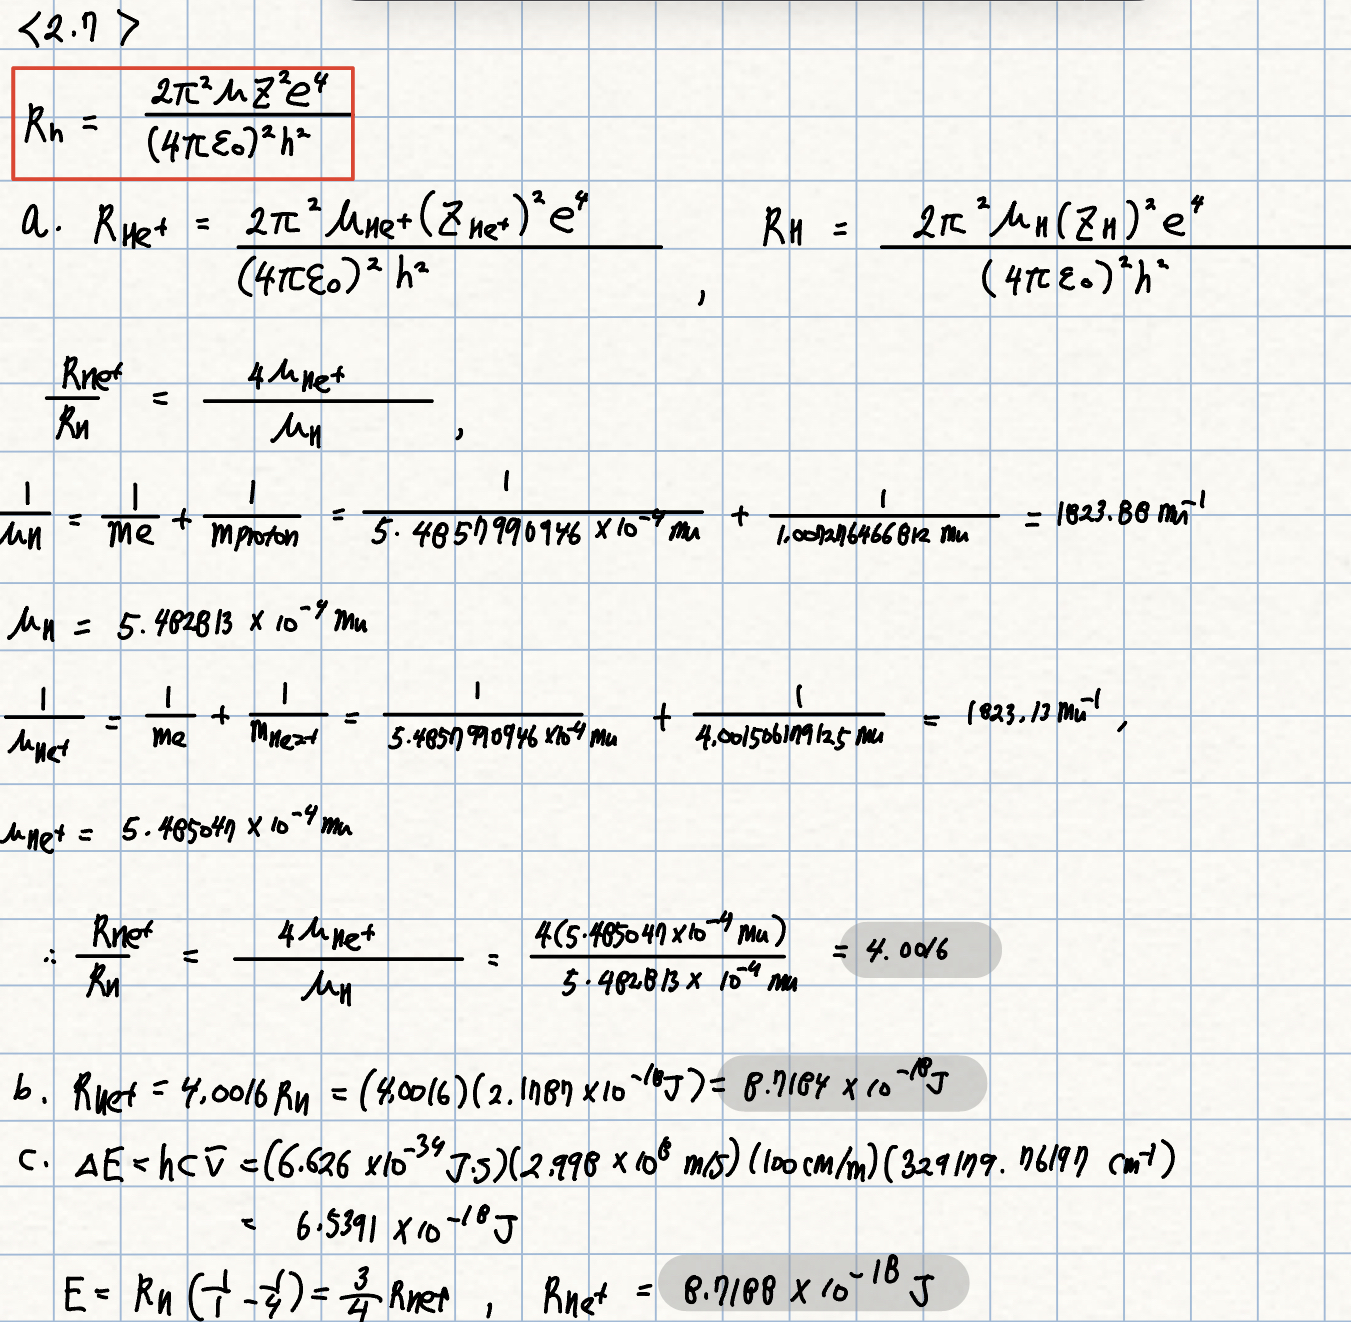 <2.7>
Rh = 2π²μZ²e⁴ / (4πε₀)²h²
a. R_He+ = 2π²μ_He+(Z_He+)²e⁴ / (4πε₀)²h² , R_H = 2π²μ_H(Z_H)²e⁴ / (4πε₀)²h²
R_He+ / R_H = 4μ_He+ / μ_H ,
1/μ_H = 1/me + 1/m_proton = 1 / 5.48579990946 × 10⁻⁴ mu + 1 / 1.007276466812 mu = 1823.88 mu⁻¹
μ_H = 5.482813 × 10⁻⁴ mu
1/μ_He+ = 1/me + 1/m_He2+ = 1 / 5.48579990946 × 10⁻⁴ mu + 1 / 4.001506179125 mu = 1823.13 mu⁻¹ ,
μ_He+ = 5.485047 × 10⁻⁴ mu
∴ R_He+ / R_H = 4μ_He+ / μ_H = 4(5.485047 × 10⁻⁴ mu) / 5.482813 × 10⁻⁴ mu = 4.0016
b. R_He+ = 4.0016 R_H = (4.0016)(2.1787 × 10⁻¹⁸ J) = 8.7184 × 10⁻¹⁸ J
c. ΔE = hcν̄ = (6.626 × 10⁻³⁴ J·s)(2.998 × 10⁸ m/s)(100 cm/m)(329179.76197 cm⁻¹)
= 6.5391 × 10⁻¹⁸ J
E = R_H (1/1 - 1/4) = 3/4 R_He+ , R_He+ = 8.7188 × 10⁻¹⁸ J